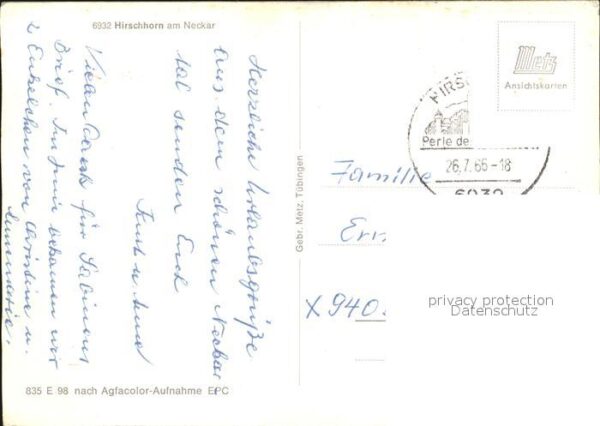 6932 Hirschhorn am Neckar
Herzliche Urlaubsgrüße
aus dem schönen Neckar
tal senden Euch
Kurt u.
Vielen Dank für Sabines
Brief. Im Juni bekamen wir
2 Enkelchen von Christine u.
Annemarie.
835 E 98 nach Agfacolor-Aufnahme EPC
Gebr. Metz, Tübingen
Metz
Ansichtskarten
HIRS
Perle de
26.7.65-18
6932
Familie
X940
privacy protection
Datenschutz